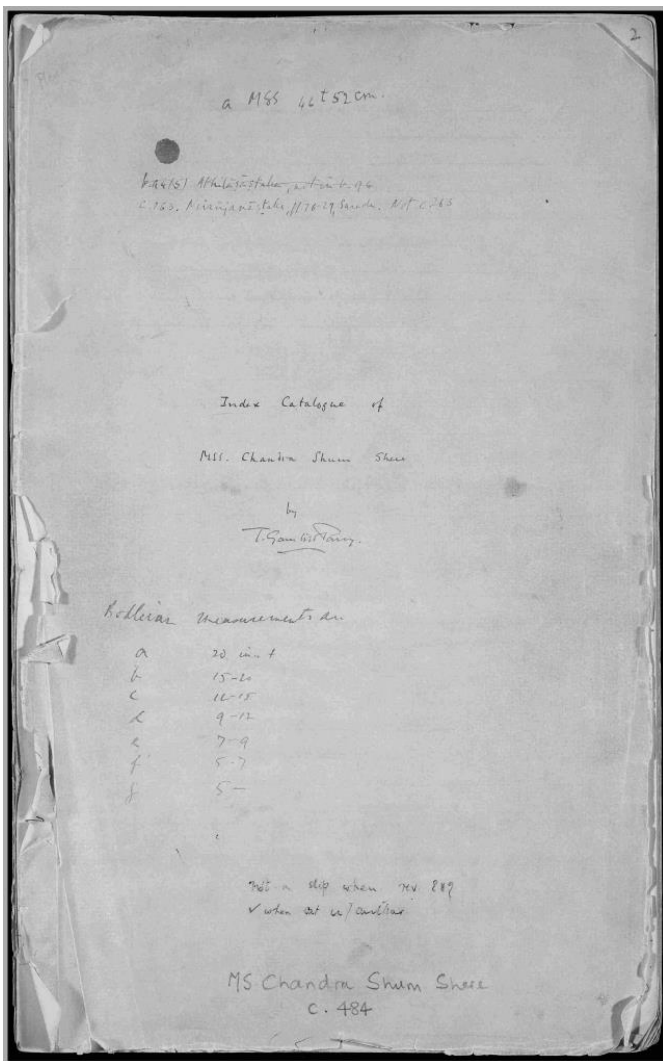 2
a MSS 46 t 52 cm.
not in b. 96
c. 163. Niranjanāṣṭaka, ff. 26-29, Not c. 263
Index Catalogue of
MSS. Chandra Shum Shere
by
T. Gambier Parry.
Bodleian measurements are
a 20 in. +
b 15-20
c 12-15
d 9-12
e 7-9
f 5-7
g 5-
Not a slip when
✓ when cat w/ author
MS Chandra Shum Shere
c. 484